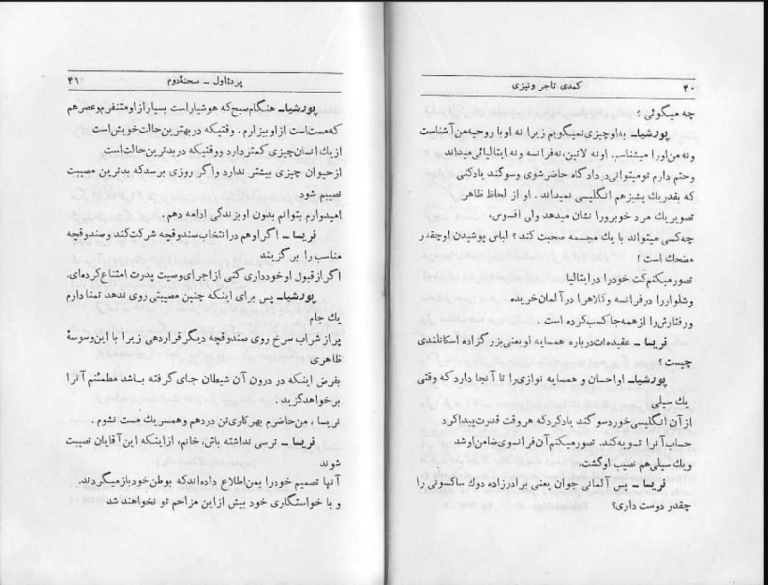 ۴۰ کمدی تاجر ونیزی
چه میگوئی ؟
پورشیا– به‌او چیزی نمیگویم زیرا نه او با روحیه‌من آشناست
ونه من اورا میشناسم. اونه لاتین، نه فرانسه ونه ایتالیائی میداند
وحتم دارم تو میتوانی در دادگاه حاضر شوی وسوگند یاد کنی
که بقدر یك پشیز هم انگلیسی نمیداند . او از لحاظ ظاهر
تصویر یك مرد خوبرو را نشان میدهد ولی افسوس،
چه کسی میتواند با یك مجسمه صحبت کند ؟ لباس پوشیدن او چقدر
مضحك است !
تصور میکنم کت خود را در ایتالیا
وشلوار را در فرانسه و کلاه را در آلمان خریده
ورفتارش را از همه جا کسب کرده است .
نریسا – عقیده‌ات درباره همسایه او یعنی بزرگزاده اسکاتلندی
چیست ؟
پورشیا– او احسان و همسایه نوازی را تا آنجا دارد که وقتی
یك سیلی
از آن انگلیسی خورد سوگند یاد کرد که هر وقت قدرت پیدا کرد
حساب آنرا تسویه کند. تصور میکنم آن فرانسوی ضامن او شد
ویك سیلی هم نصیب او گشت.
نریسا – پس آلمانی جوان یعنی برادرزاده دوك ساکسونی را
چقدر دوست داری؟
پردهٔ اول – سحنهٔ دوم ۴۱
پورشیا– هنگام صبح که هوشیار است بسیار از او متنفرم وعصر هم
که مست است از او بیزارم . وقتیکه در بهترین حالت خویش است
از یك انسان چیزی کمتر دارد ووقتیکه در بدترین حالت است
از حیوان چیزی بیشتر ندارد واگر روزی برسد که بدترین مصیبت
نصیبم شود
امیدوارم بتوانم بدون او بزندگی ادامه دهم .
نریسا – اگر او هم در انتخاب صندوقچه شرکت کند وصندوقچه
مناسب را برگزیند
اگر از قبول او خودداری کنی از اجرای وصیت پدرت امتناع کرده‌ای.
پورشیا– پس برای اینکه چنین مصیبتی روی ندهد تمنا دارم
یك جام
پر از شراب سرخ روی صندوقچه دیگر قرار دهی زیرا با این وسوسهٔ
ظاهری
بفرض اینکه در درون آن شیطان جای گرفته باشد مطمئنم آنرا
برخواهد گزید .
نریسا ، من حاضرم بهر کاری تن دردهم وهمسر یك مست نشوم .
نریسا – ترسی نداشته باش، خانم، از اینکه این آقایان نصیبت
شوند
آنها تصمیم خود را بمن اطلاع داده‌اند که بوطن خود باز میگردند.
و با خواستگاری خود بیش از این مزاحم تو نخواهند شد